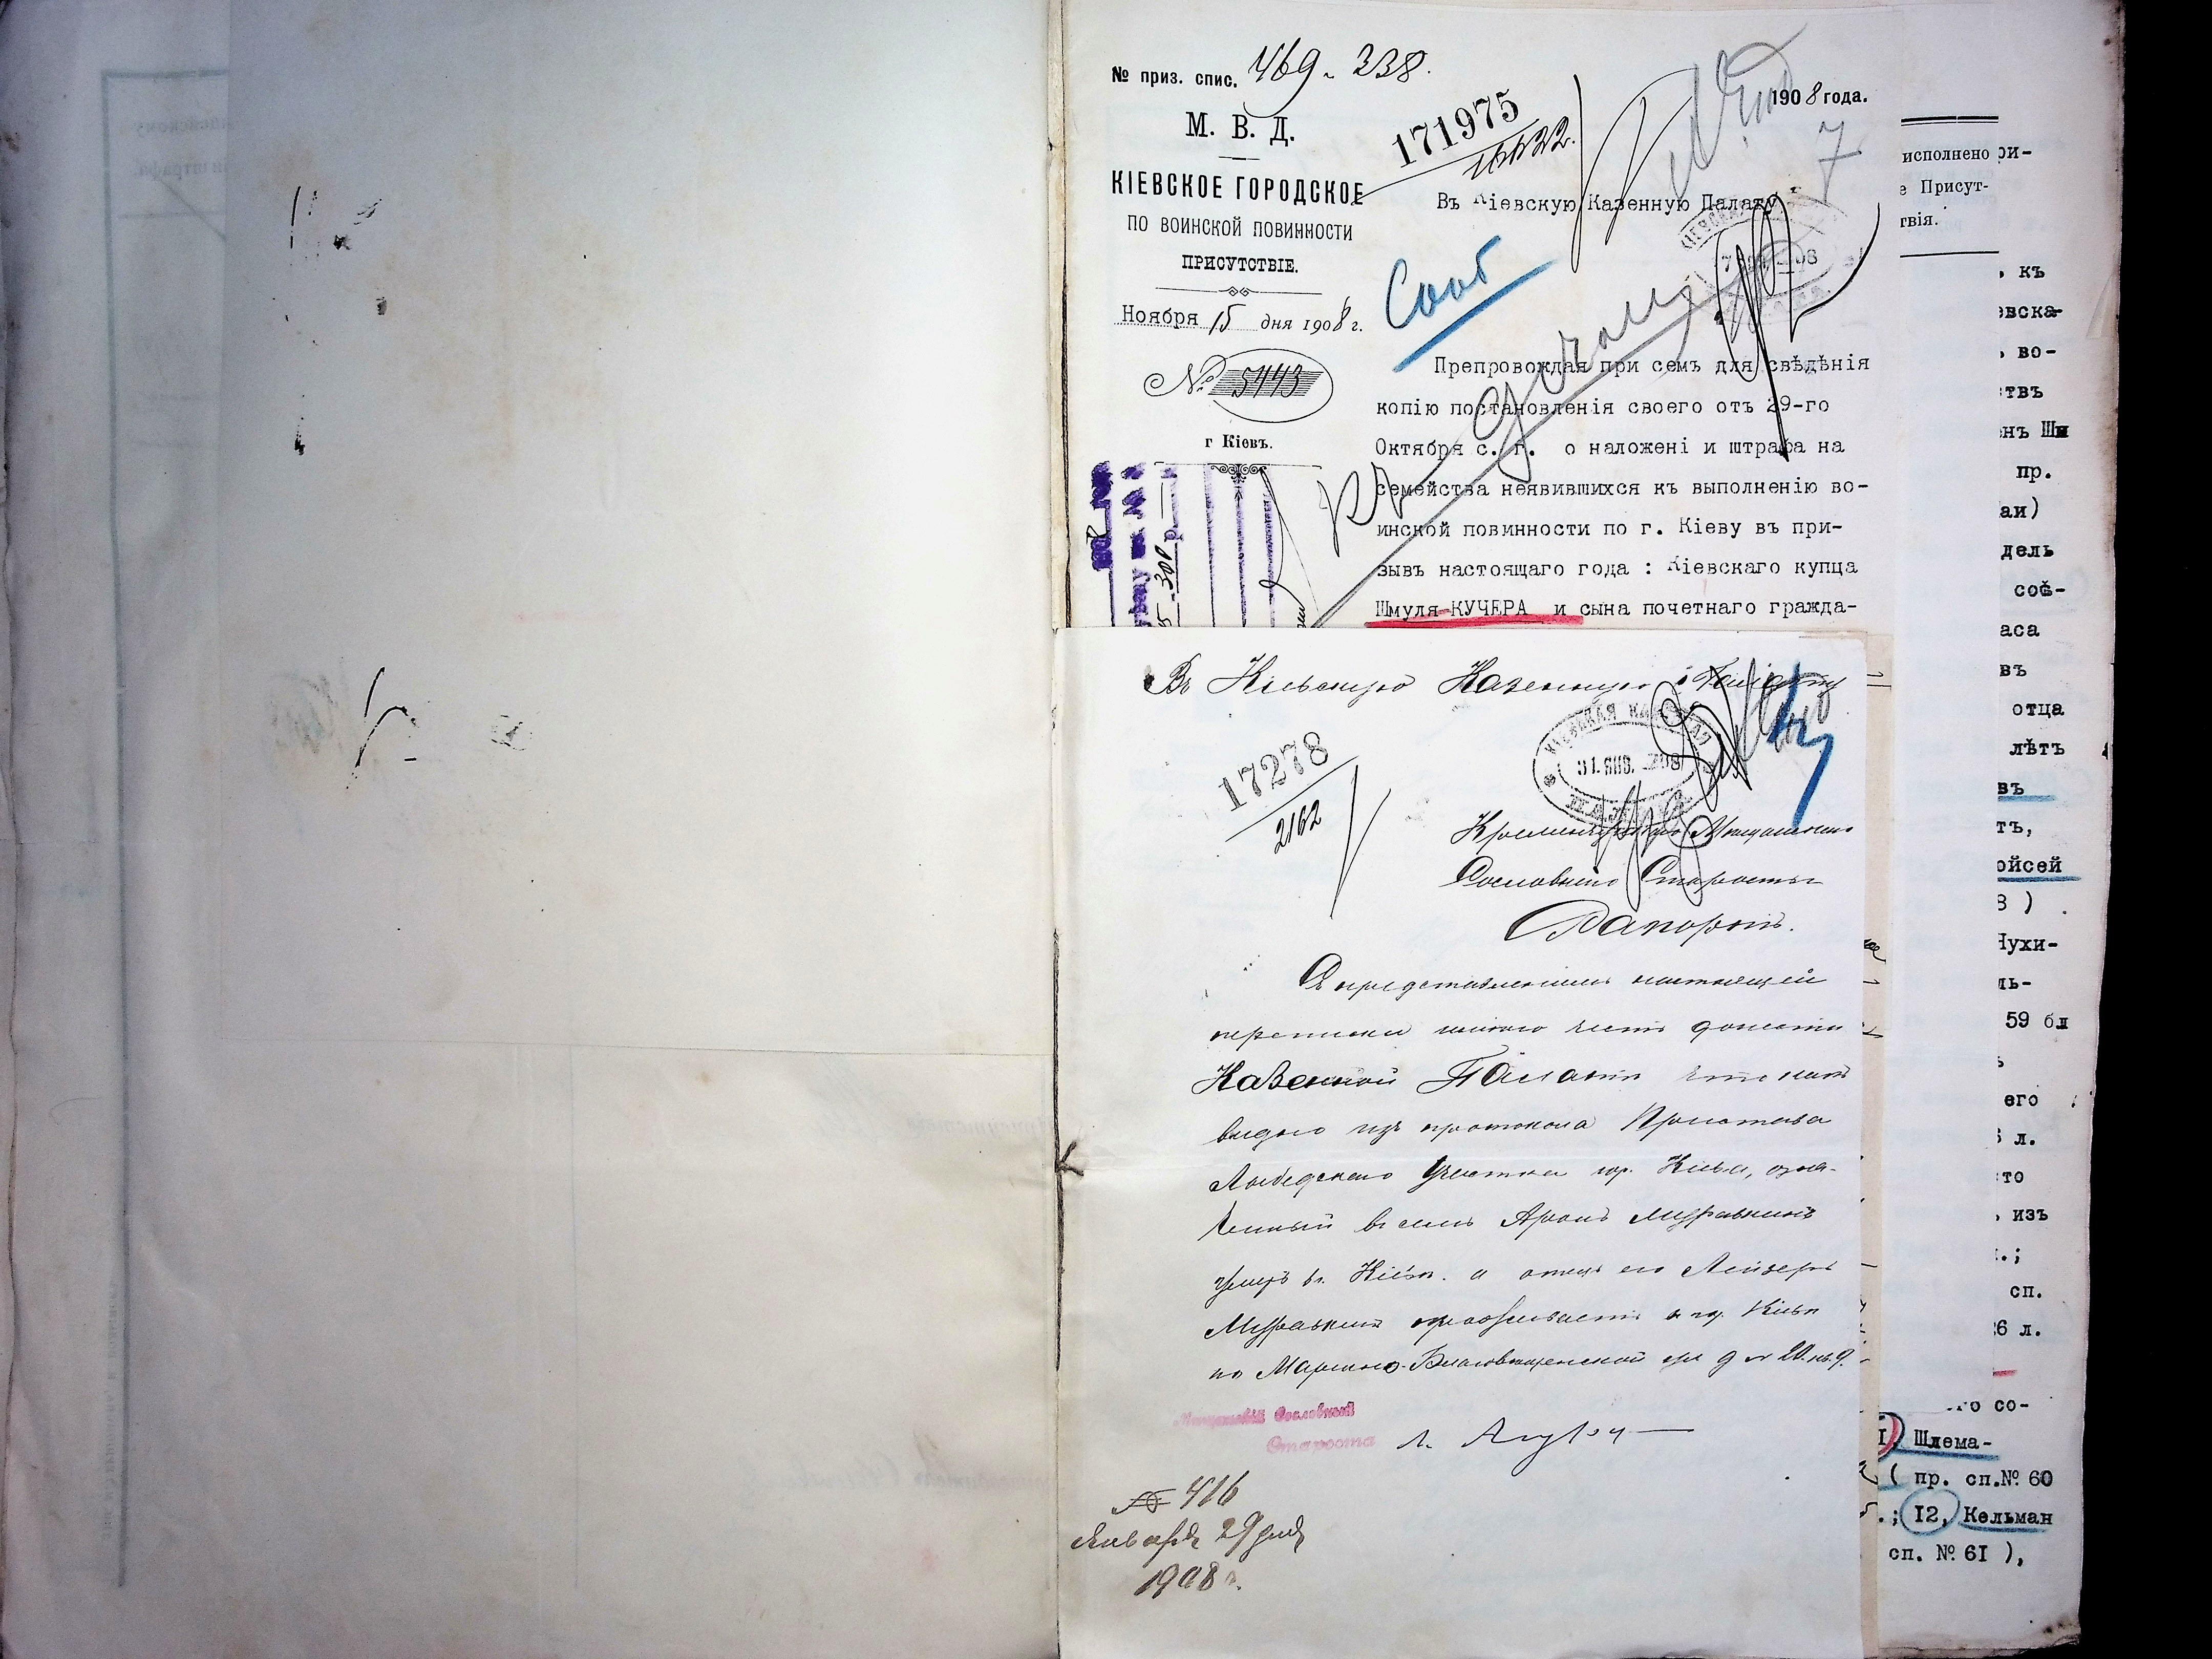 № приз. спис. 469 - 338.
М. В. Д.
КІЕВСКОЕ ГОРОДСКОЕ
ПО ВОИНСКОЙ ПОВИННОСТИ
ПРИСУТСТВІЕ.
Ноября 15 дня 1908 г.
№ 5443
г Кіевъ.
1908 года.
171975
7
Въ Кіевскую Казенную Палату
Сооб
Препровождая при семъ для свѣдѣнія
копію постановленія своего отъ 29-го
Октября с. г. о наложені и штрафа на
семейства неявившихся къ выполненію во-
инской повинности по г. Кіеву въ при-
зывъ настоящаго года : Кіевскаго купца
Шмуля КУЧЕРА и сына почетнаго гражда-
Въ Кіевскую Казенную Палату
17278
2162
31. ЯНВ. 908
Мѣщанскаго
Сословнаго Старосты
Рапортъ.
Съ представленіемъ настоящей
переписки имѣю честь донести
Казенной Палатѣ что какъ
видно изъ протокола Пристава
Лыбедскаго участка гор. Кіева, озна-
ченный въ немъ Аронъ Муравкинъ
умеръ въ г. Кіевѣ. а отецъ его Лейзеръ
Муравкинъ проживаетъ въ гор. Кіевѣ
по Маріино-Благовѣщенской ул д № 20. кв. 9.
Мѣщанскій Сословный
Староста
№ 416
Января 29 дня
1908 г.
исполнено
ри-
е Присут-
твія.
ъ къ
евска-
ъ во-
тствъ
пр.
аи)
дель
соѣ-
аса
въ
отца
лѣтъ
въ
тъ,
ойсей
8 ) .
Нухи-
ль-
59 бл
его
л.
то
ъ изъ
.;
сп.
26 л.
го со-
Шлема-
( пр. сп.№ 60
.; 12, Кельман
сп. № 61 ),